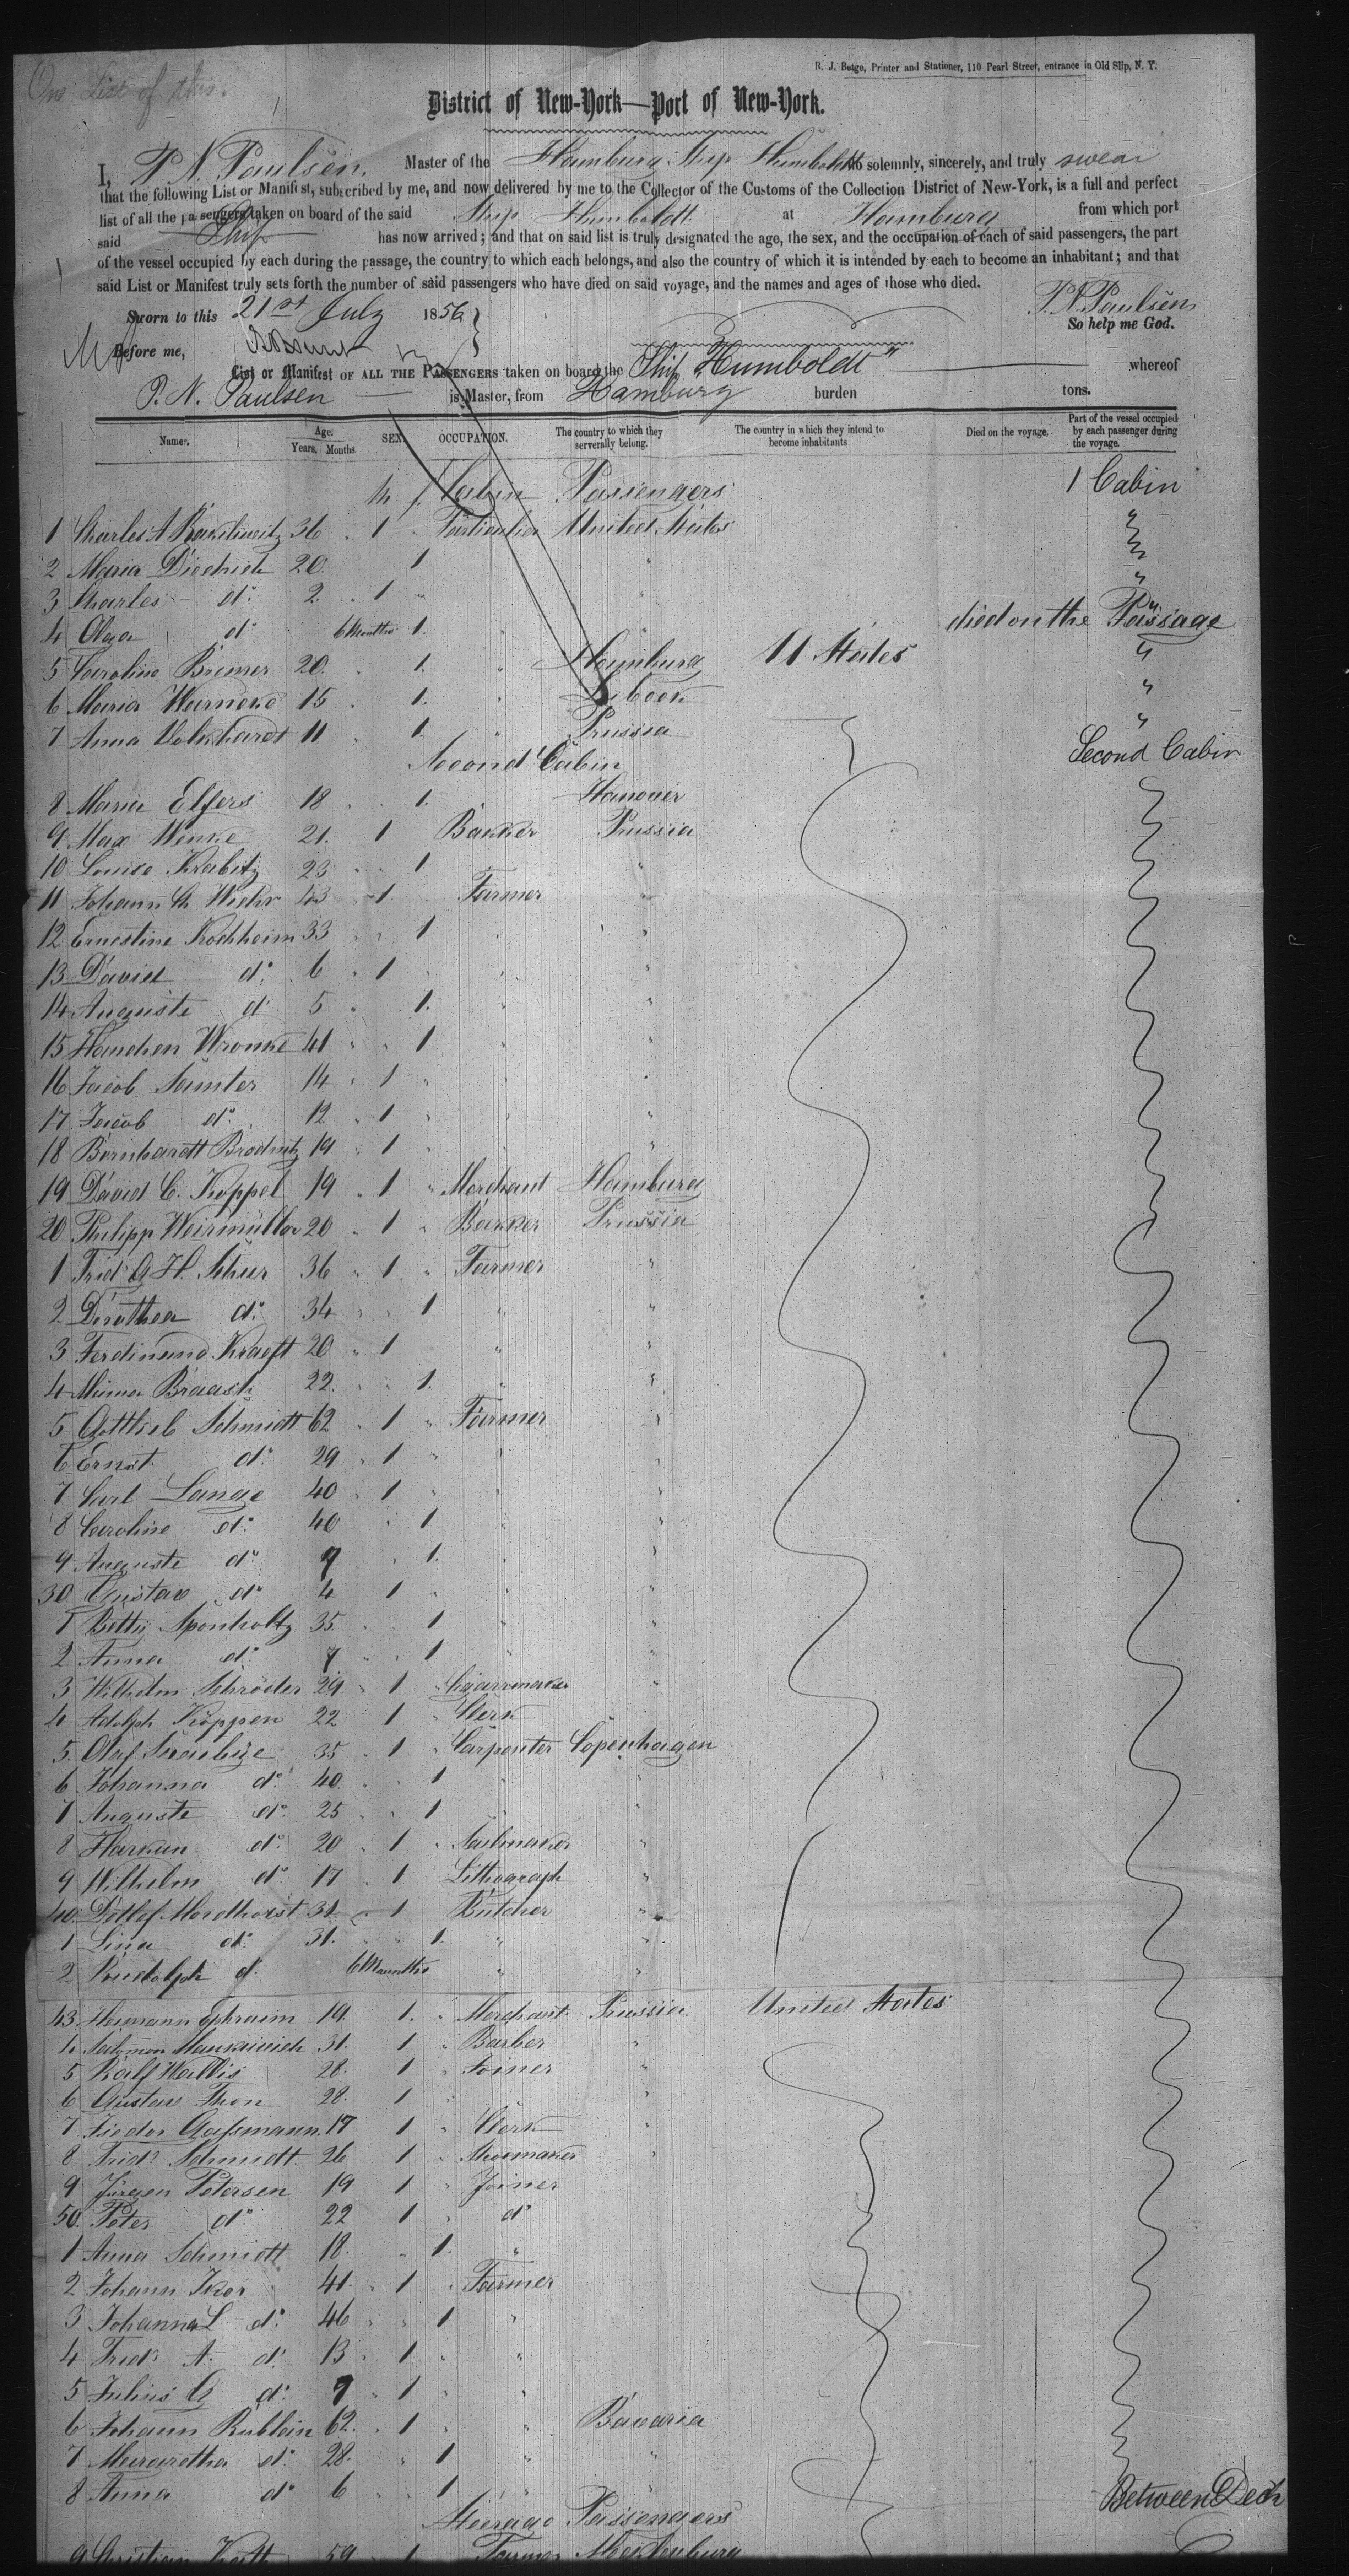 One List of this.
R. J. Betge, Printer and Stationer, 110 Pearl Street, entrance in Old Slip, N. Y.
District of New-York—Port of New-York.
I, P. N. Paulsen, Master of the Hamburg Ship Humboldt do solemnly, sincerely, and truly swear
that the following List or Manifest, subscribed by me, and now delivered by me to the Collector of the Customs of the Collection District of New-York, is a full and perfect
list of all the passengers taken on board of the said Ship Humboldt at Hamburg from which port
said Ship has now arrived; and that on said list is truly designated the age, the sex, and the occupation of each of said passengers, the part
of the vessel occupied by each during the passage, the country to which each belongs, and also the country of which it is intended by each to become an inhabitant; and that
said List or Manifest truly sets forth the number of said passengers who have died on said voyage, and the names and ages of those who died.
Sworn to this 21st July 1856 P. N. Paulsen
So help me God.
Before me,
List or Manifest OF ALL THE PASSENGERS taken on board the Ship "Humboldt" whereof
P. N. Paulsen is Master, from Hamburg burden tons.
Names. Age. Years. Months. SEX. OCCUPATION. The country to which they serverally belong. The country in which they intend to become inhabitants Died on the voyage. Part of the vessel occupied by each passenger during the voyage.
m f Cabin Passengers 1 Cabin
1 Charles A 36 1 United States "
2 Maria Diedrich 20. 1 " "
3 Charles do 2. 1 " "
4 Olga do 6 Months 1. " died on the Passage
5 Caroline Bremer 20. 1. " Hamburg U States "
6 Maria Warneke 15 1. " "
7 Anna Volkhardt 11 1. " Prussia "
Second Cabin Second Cabin
8 Maria Elfers 18 1. Hanover
9 Max Wenke 21. 1 Prussia
10 Louise Krabitz 23 1 "
11 Johann 43 1. Farmer "
12 Ernestine Kochheim 33 1 "
13 David do 6 1 "
14 Auguste do 5 1. "
15 Hanchen Wronke 41 1 "
16 Jacob Samter 14 1 "
17 Jacob do 12 1 "
18 Bernhardt Brodnitz 19 1 "
19 David C. Koppel 19 1 Merchant Hamburg
20 Philipp Weirmüller 20 1 Prussia
1 Frid G H. Scheer 36 1 Farmer "
2 Dorothea do 34 1 " "
3 Ferdinand Kraeft 20 1 " "
4 Mima Braash 22. 1. " "
5 Gottlieb Schmidt 62 1 Farmer "
6 Ernst do 29 1 " "
7 Carl Lange 40 1 " "
8 Caroline do 40 1 " "
9 Auguste do 9 1. " "
30 Gustav do 4 1 " "
1 Betty Sponholtz 35. 1 " "
2 Anna do 7 1 " "
3 Wilhelm Schröder 29 1 Cigarrmaker "
4 Adolph Köppen 22 1 Clerk
5. Olaf 35 1 Carpenter Copenhagen
6 Johanna do 40. 1 " "
7 Auguste do 25 1 "
8 do 20 1 Sailmaker "
9 Wilhelm do 17 1 Lithograph "
40. Detlef Mordhorst 31 1 Butcher "
1 Lina do 31. 1. " "
2 Rudolph do 6 Maunths " "
43. Hermann Ephraim 19. 1. Merchant Prussia United States
4 Salomon 31. 1 Barber "
5 Ralf Wallis 28. 1 Joiner "
6 Gustav Thon 28. 1 "
7 Isedor Gassmann 17 1 Clerk "
8 Frid Schmidt 26 1 Shoemaker "
9 Jürgen Petersen 19 1 Joiner
50. Peter do 22 1 do
1 Anna Schmidt 18. 1. "
2 Johann 41. 1 Farmer
3 Johanna L do 46 1 "
4 Frid A. do 13 1 "
5 Julius G do 9 1 "
6 Johann Rüblein 62. 1 " Bavaria
7 Margretha do 28. 1 " "
8 Anna do 6 1 " "
Steerage Passengers Between Deck
9 Christian 59 1 Farmer Meklenburg